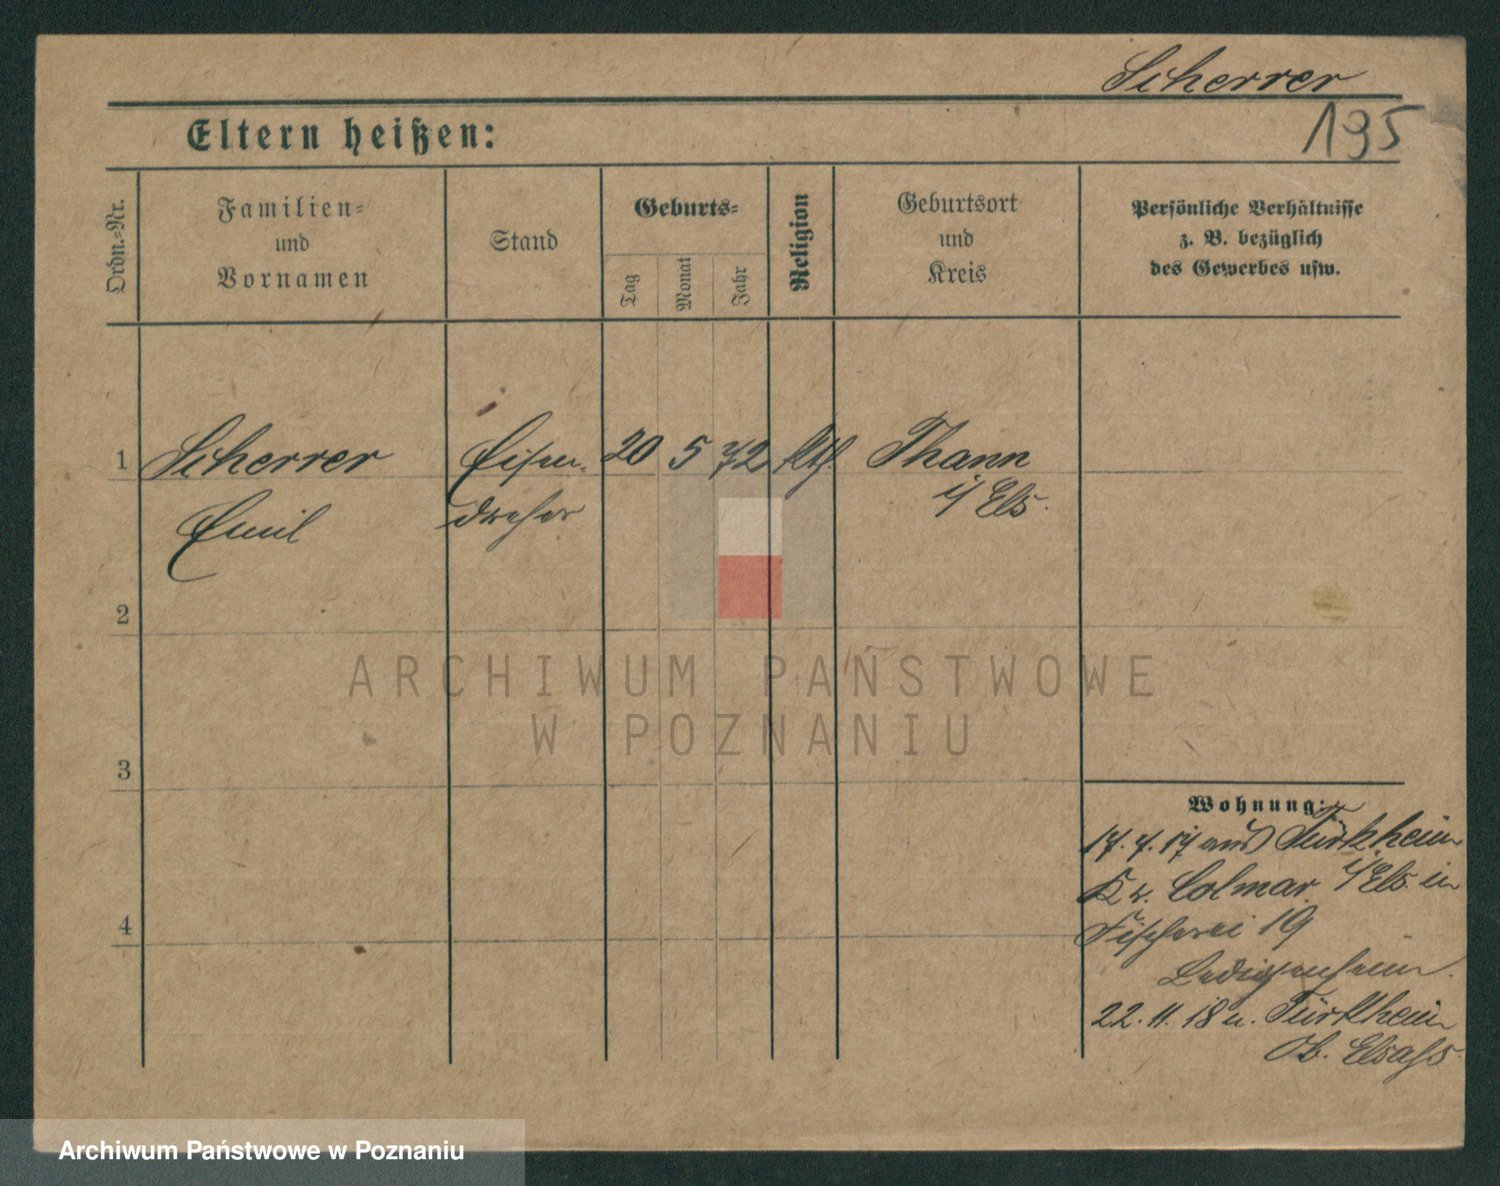 Scherrer
195
Eltern heißen:
Ordn.-Nr.
Familien-
und
Vornamen
Stand
Geburts-
Tag
Monat
Jahr
Religion
Geburtsort
und
Kreis
Persönliche Verhältnisse
z. B. bezüglich
des Gewerbes usw.
1 Scherrer Eisen- 20 5 72 kth. Thann
Emil dreher i/ Els.
2
3
4
Wohnung:
17.7.17 aus Türkheim
Kr. Colmar i/Els. in
Fischerei 19
Ledigenheim.
22.11.18 n. Türkheim
Ob. Elsaß
ARCHIWUM PAŃSTWOWE
W POZNANIU
Archiwum Państwowe w Poznaniu